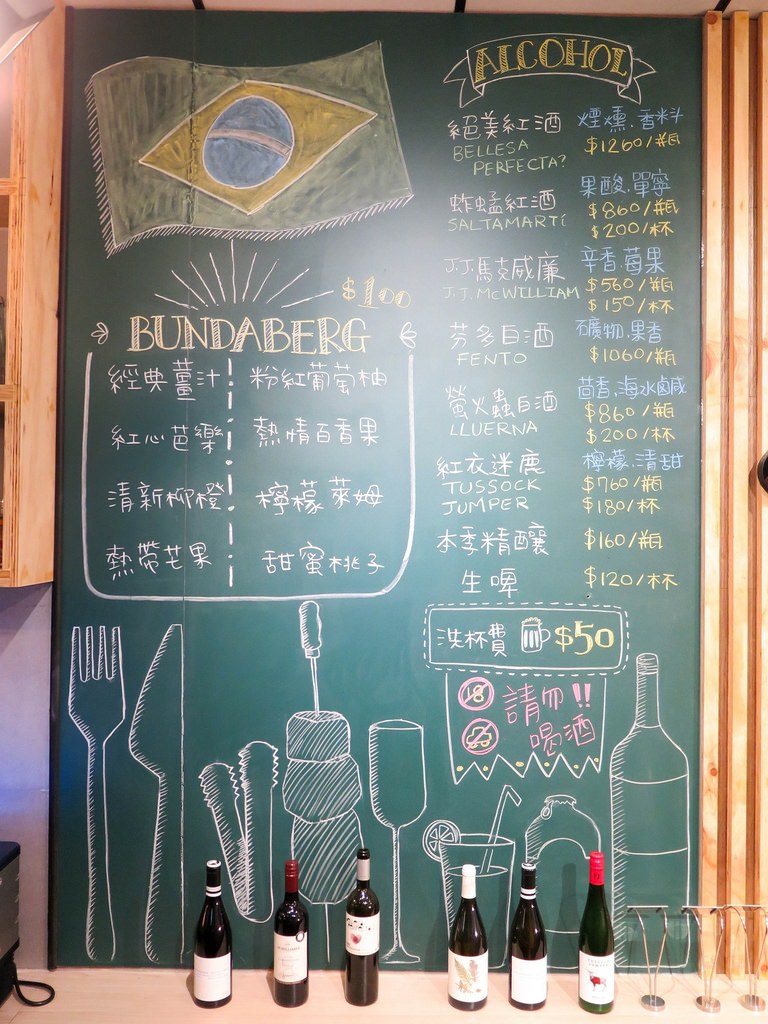 $100
BUNDABERG
經典薑汁 粉紅葡萄柚
紅心芭樂 熱情百香果
清新柳橙 檸檬萊姆
熱帶芒果 甜蜜桃子
ALCOHOL
絕美紅酒 煙燻.香料
BELLESA PERFECTA? $1260/瓶
蚱蜢紅酒 果酸.單寧
SALTAMARTÍ $860/瓶
$200/杯
J.J.馬克威廉 辛香.莓果
J.J. MCWILLIAM $560/瓶
$150/杯
芬多白酒 礦物.果香
FENTO $1060/瓶
螢火蟲白酒 茴香.海水鹹
LLUERNA $860/瓶
$200/杯
紅衣迷鹿 檸檬.清甜
TUSSOCK $760/瓶
JUMPER $180/杯
本季精釀 $160/瓶
生啤 $120/杯
洗杯費 $50
18 請勿!!
喝酒